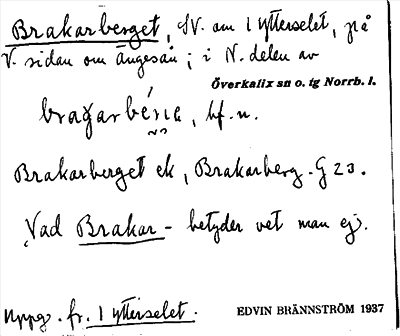 Brakarberget, SV. om 1 ytterselet, på
V. sidan om ängesån; i N. delen av
Överkalix sn o. tg Norrb. l.
bf. n.
Brakarberget ek, Brakarberg. G 23.
Vad Brakar- betyder vet man ej.
Uppg. fr. 1 ytterselet.
EDVIN BRÄNNSTRÖM 1937